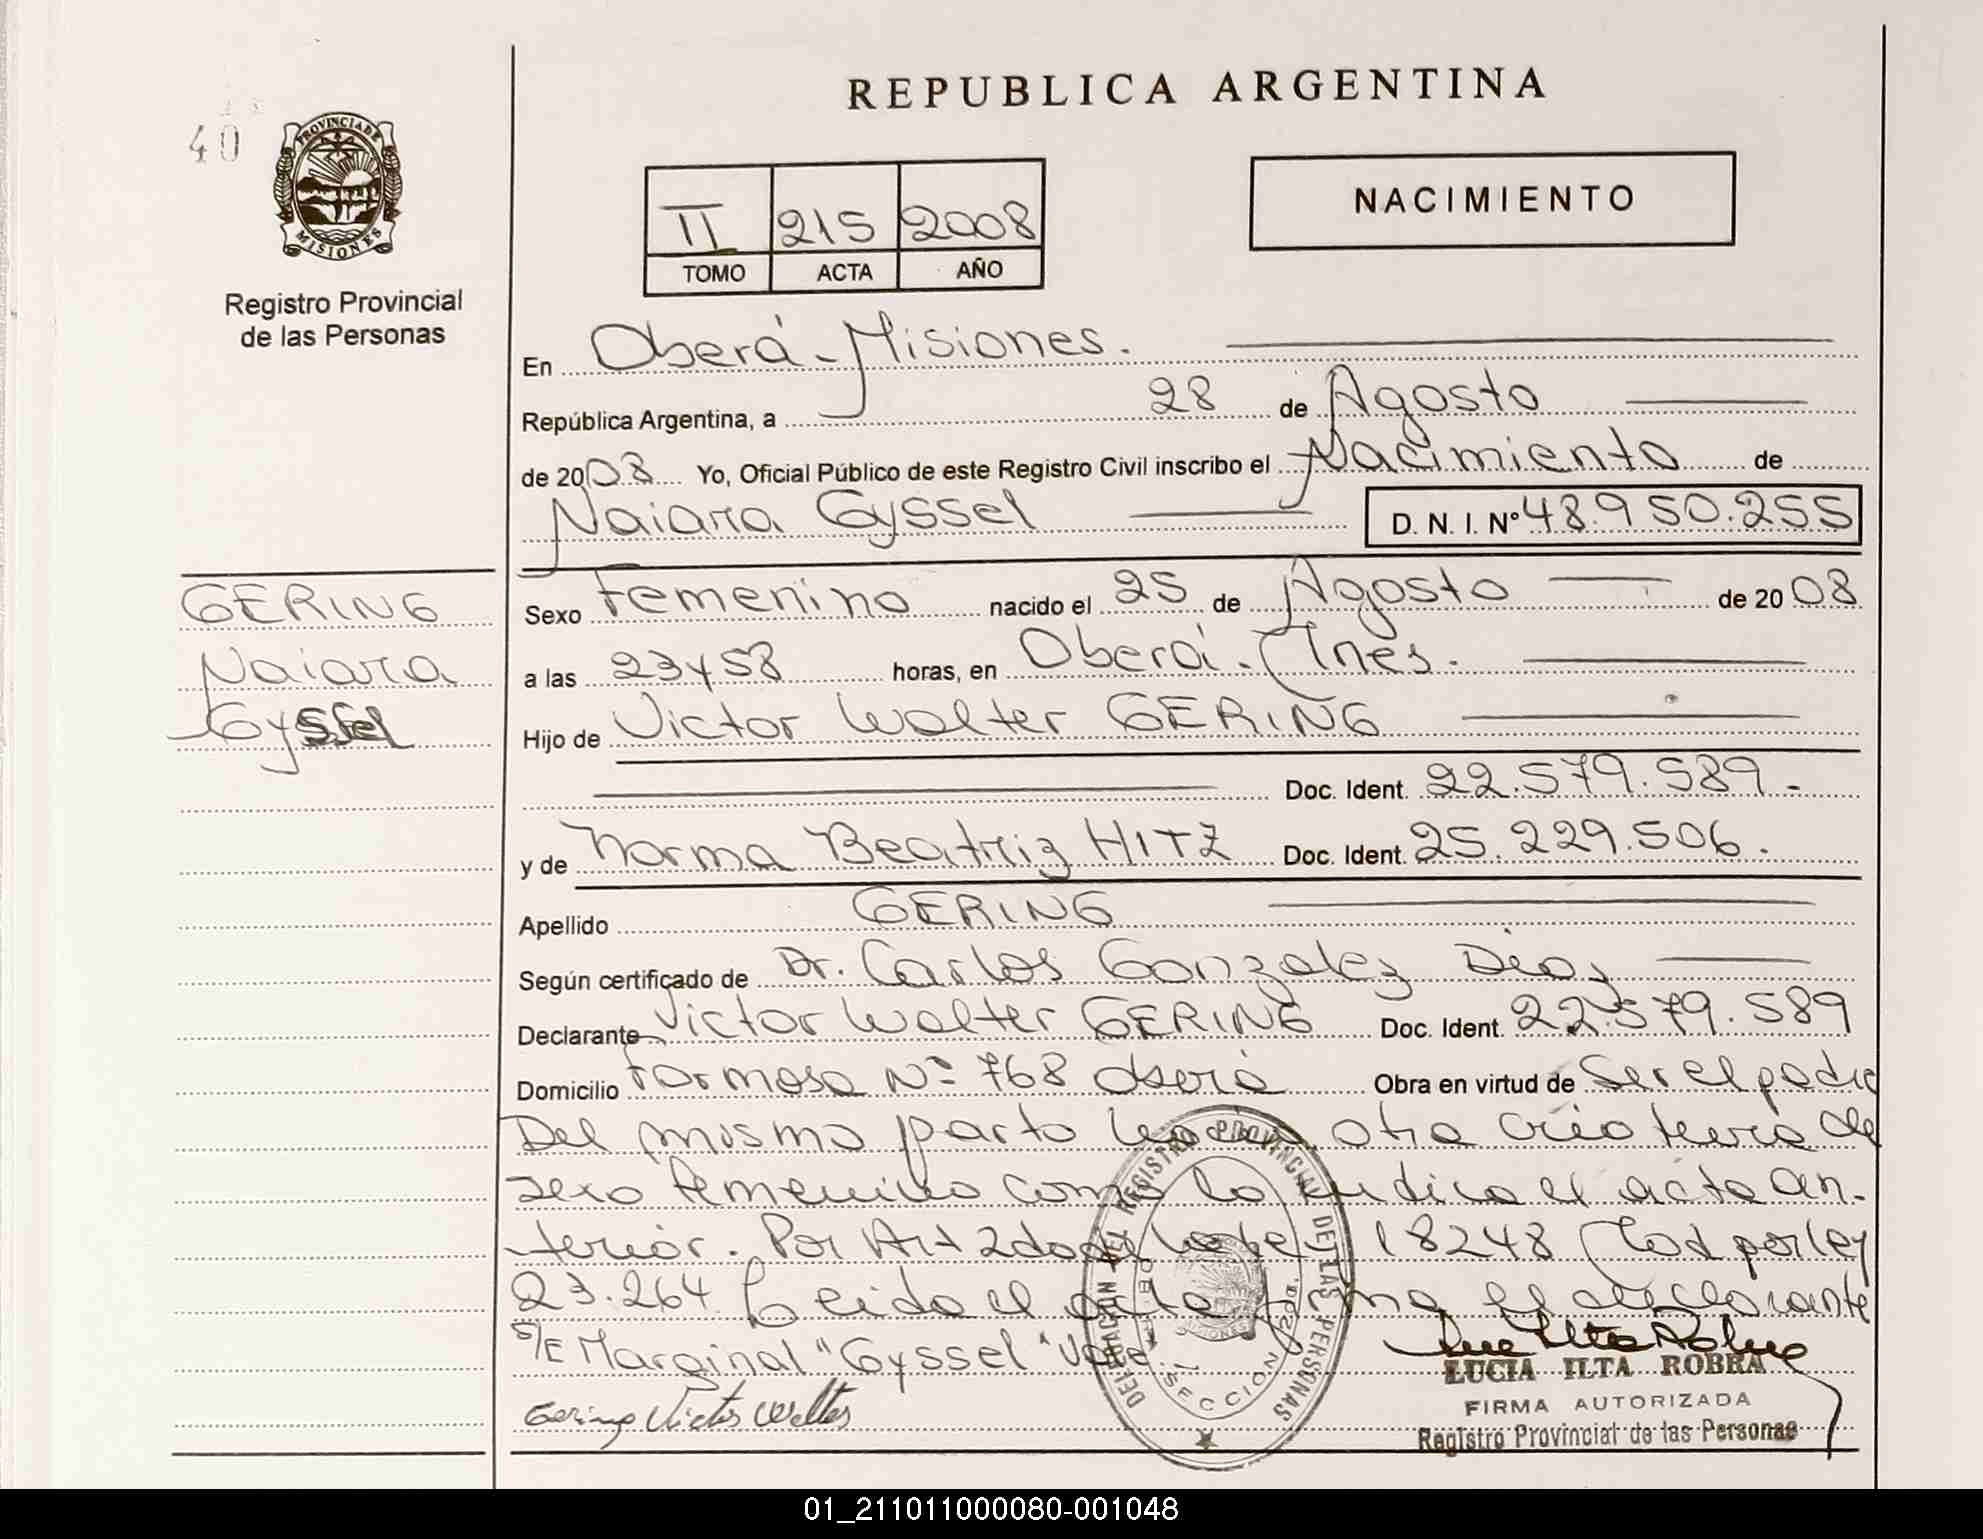 REPUBLICA ARGENTINA
40
PROVINCIA DE
MISIONES
Registro Provincial
de las Personas
NACIMIENTO
II 215 2008
TOMO ACTA AÑO
En Oberá - Misiones.
República Argentina, a 28 de Agosto
de 2008 Yo, Oficial Público de este Registro Civil inscribo el Nacimiento de
Naiara Gyssel D. N. I. Nº 48.950.255
GERING
Naiara
Gyssel
Sexo Femenino nacido el 25 de Agosto de 2008
a las 23y58 horas, en Oberá. Mnes.
Hijo de Victor Walter GERING
Doc. Ident. 22.579.589.-
y de Norma Beatriz HITZ Doc. Ident. 25.229.506.
Apellido GERING
Según certificado de Dr. Carlos Gonzalez Diaz
Declarante Victor Walter GERING Doc. Ident. 22.579.589
Domicilio Formosa Nº 768 Oberá Obra en virtud de Ser el padre
Del mismo parto otra de
sexo femenino como lo indica el acta an-
terior. Por Art 2do de la ley 18248 Mod por ley
23.264 Leido el acta firma el declarante
S/E Marginal "Gyssel" Vale
Gering Victor Walter
DELEGACION DEL REGISTRO PROVINCIAL DE LAS PERSONAS
SECCION
LUCIA ILTA ROBRA
FIRMA AUTORIZADA
Registro Provincial de las Personas
01_211011000080-001048